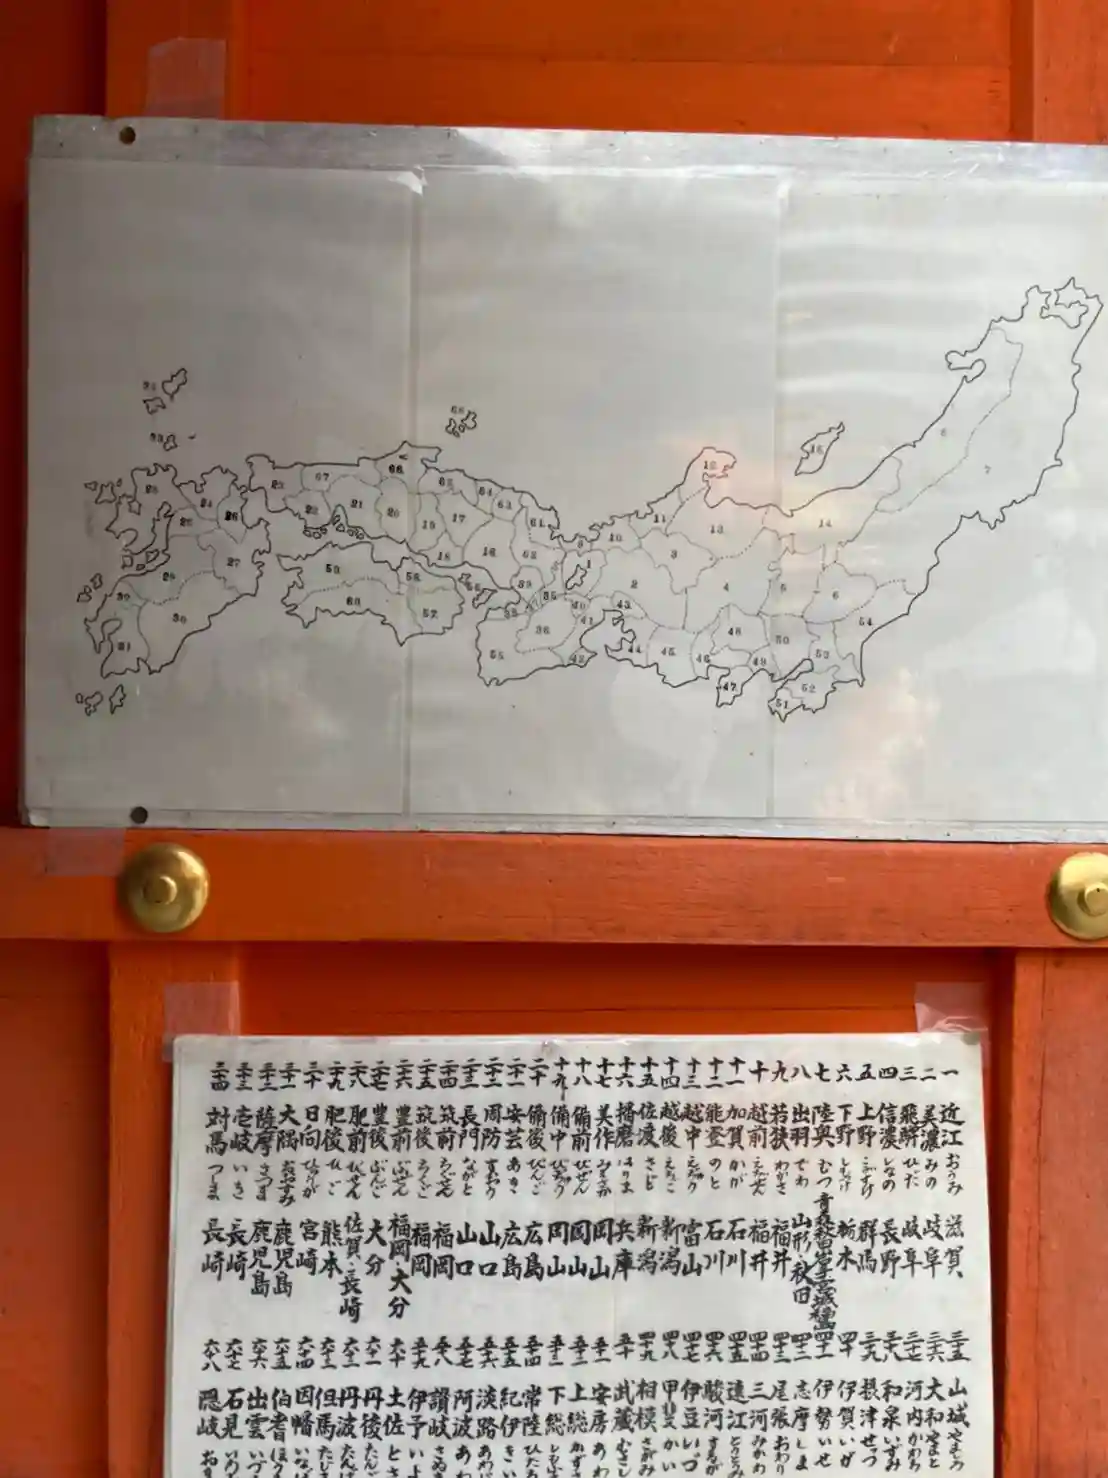 34
33
68
15
12
28
24
26
25
27
29
32
30
31
23
67
22
21
66
20
65
19
17
64
63
61
18
16
62
59
60
58
57
56
55
9
1
10
11
13
14
8
7
2
3
4
5
6
39
35
40
41
38
36
42
43
44
45
46
47
48
49
50
51
52
53
54
一 近江 おうみ 滋賀
二 美濃 みの 岐阜
三 飛騨 ひだ 岐阜
四 信濃 しなの 長野
五 上野 こうずけ 群馬
六 下野 しもつけ 栃木
七 陸奥 むつ 青森秋田岩手宮城福島
八 出羽 でわ 山形・秋田
九 若狭 わかさ 福井
十 越前 えちぜん 福井
十一 加賀 かが 石川
十二 能登 のと 石川
十三 越中 えっちゅう 富山
十四 越後 えちご 新潟
十五 佐渡 さど 新潟
十六 播磨 はりま 兵庫
十七 美作 みまさか 岡山
十八 備前 びぜん 岡山
十九 備中 びっちゅう 岡山
二十 備後 びんご 広島
二十一 安芸 あき 広島
二十二 周防 すおう 山口
二十三 長門 ながと 山口
二十四 筑前 ちくぜん 福岡
二十五 筑後 ちくご 福岡
二十六 豊前 ぶぜん 福岡・大分
二十七 豊後 ぶんご 大分
二十八 肥前 ひぜん 佐賀・長崎
二十九 肥後 ひご 熊本
三十 日向 ひゅうが 宮崎
三十一 大隅 おおすみ 鹿児島
三十二 薩摩 さつま 鹿児島
三十三 壱岐 いき 長崎
三十四 対馬 つしま 長崎
三十五 山城 やましろ
三十六 大和 やまと
三十七 河内 かわち
三十八 和泉 いずみ
三十九 摂津 せっつ
四十 伊賀 いが
四十一 伊勢 いせ
四十二 志摩 しま
四十三 尾張 おわり
四十四 三河 みかわ
四十五 遠江 とうとうみ
四十六 駿河 するが
四十七 伊豆 いづ
四十八 甲斐 かい
四十九 相模 さがみ
五十 武蔵 むさし
五十一 安房 あわ
五十二 上総 かずさ
五十三 下総 しもふさ
五十四 常陸 ひた
五十五 紀伊 きい
五十六 淡路 あわじ
五十七 阿波 あわ
五十八 讃岐 さぬき
五十九 伊予 いよ
六十 土佐 とさ
六十一 丹後 たんご
六十二 丹波 たんば
六十三 但馬 たじま
六十四 因幡 いなば
六十五 伯耆 ほう
六十六 出雲 いづ
六十七 石見 いわ
六十八 隠岐 おき